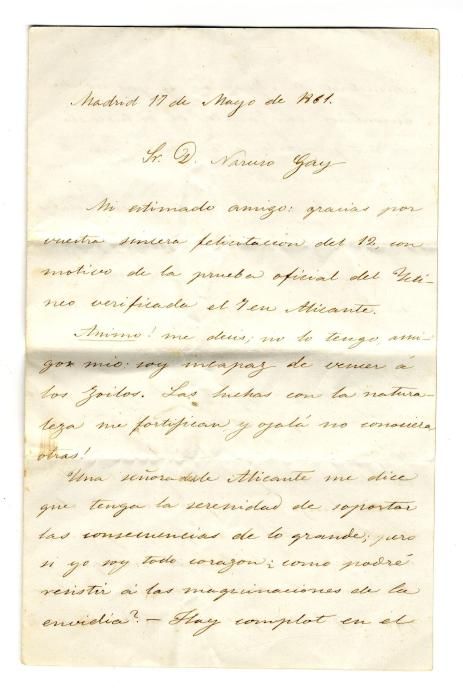 Madrid 17 de Mayo de 1861.
Sr. D. Narciso Gay
Mi estimado amigo: gracias por
vuestra sincera felicitacion del 12, con
motivo de la prueba oficial del Ictí-
neo verificada el 7 en Alicante.
Animo! me decis; no lo tengo, ami-
go mio: soy incapaz de vencer á
los Zoilos. Las luchas con la natura-
leza me fortifican y ojalá no conociera
otras!
Una señora de Alicante me dice
que tenga la serenidad de soportar
las consecuencias de lo grande; pero
si yo soy todo corazon ¿como podré
resistir á las maquinaciones de la
envidia? — Hay complot en el